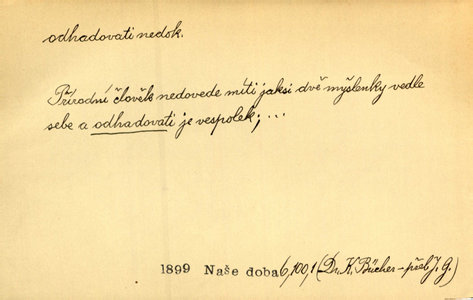 odhadovati nedok.
Přírodní člověk nedovede míti jaksi dvě myšlenky vedle
sebe a odhadovati je vespolek; ...
1899 Naše doba 6, 100, 1 (Dr. K. Bücher – přel. J. G.)